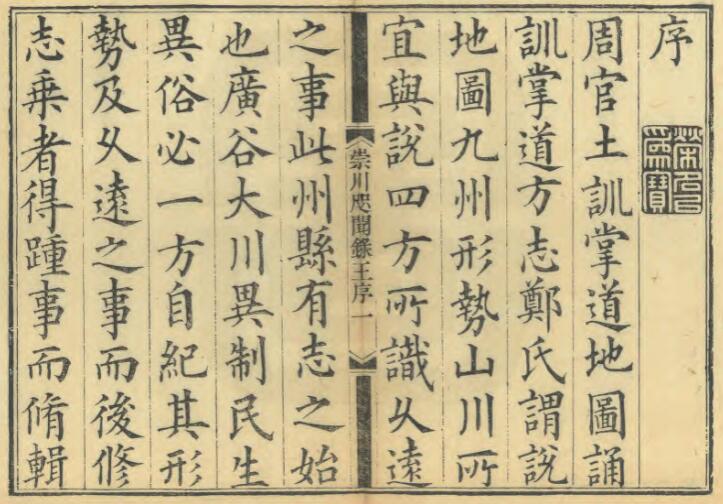 序
榮名㠯
爲寶
周官土訓掌道地圖誦
訓掌道方志鄭氏謂説
地圖九州形勢山川所
宜與説四方所識久遠
崇川咫聞錄王序一
之事此州縣有志之始
也廣谷大川異制民生
異俗必一方自紀其形
勢及久遠之事而後修
志乗者得踵事而脩輯